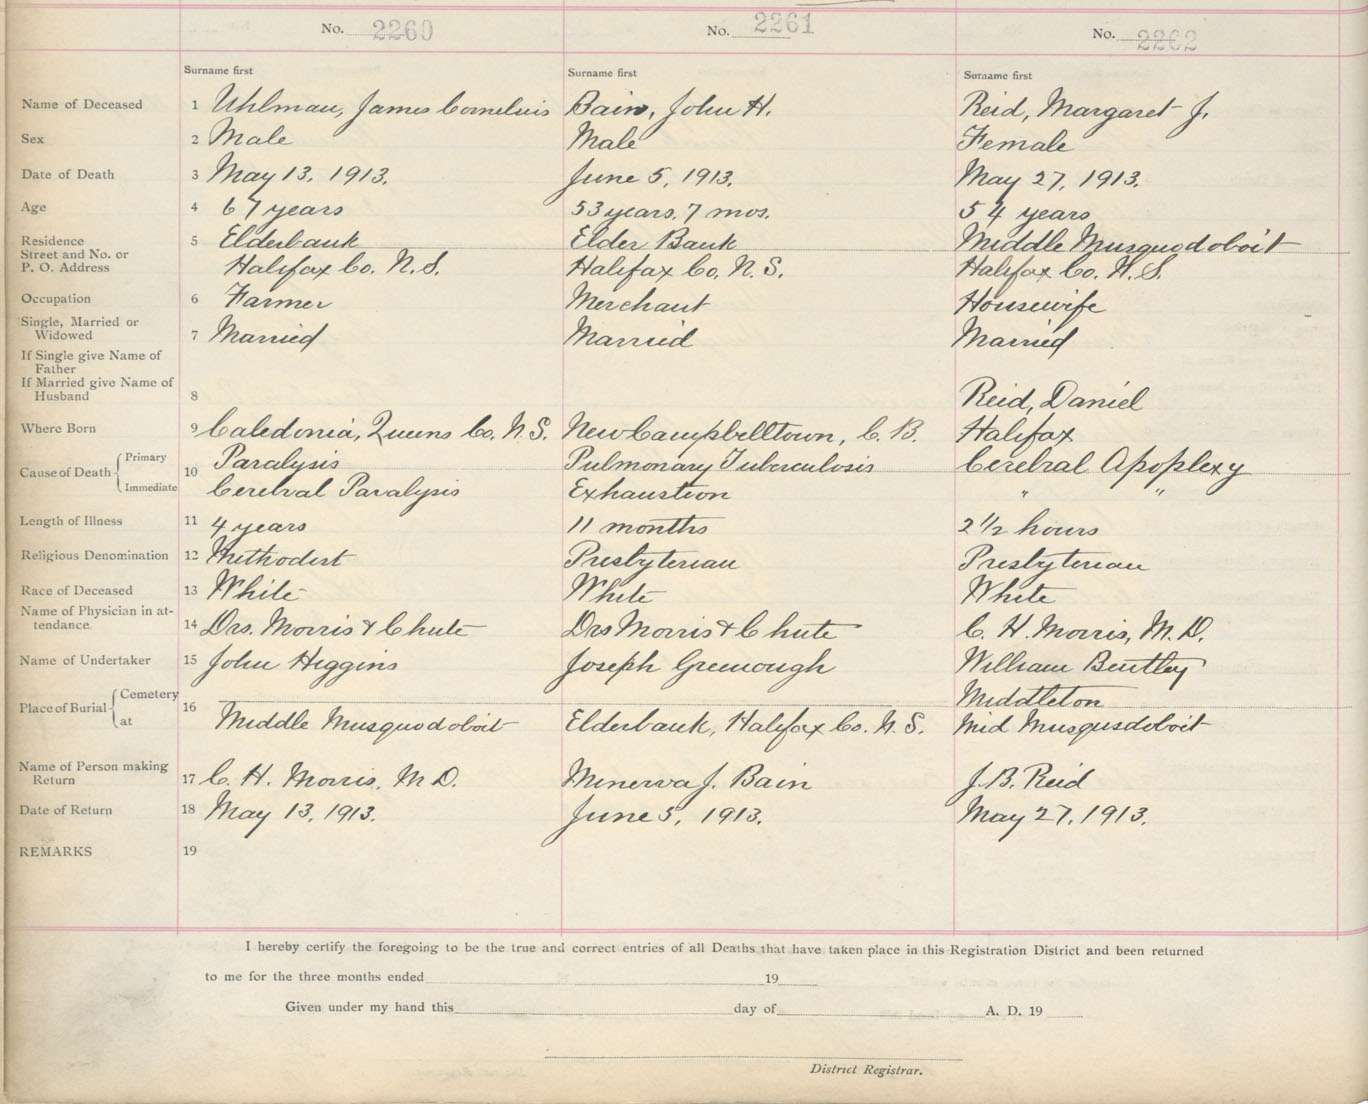 No. 2260 No. 2261 No. 2262
Surname first Surname first Surname first
Name of Deceased 1 Uhlman, James Cornelius Bain, John H. Reid, Margaret J.
Sex 2 Male Male Female
Date of Death 3 May 13, 1913. June 5, 1913. May 27, 1913.
Age 4 67 years 53 years, 7 mos. 54 years
Residence 5 Elderbank Elder Bank Middle Musquodoboit
Street and No. or
P. O. Address Halifax Co. N.S. Halifax Co, N.S. Halifax Co. N.S.
Occupation 6 Farmer Merchant Housewife
Single, Married or
Widowed 7 Married Married Married
If Single give Name of
Father
If Married give Name of
Husband 8 Reid, Daniel
Where Born 9 Caledonia, Queens Co. N.S. New Campbelltown, C.B. Halifax
Cause of Death Primary 10 Paralysis Pulmonary Tuberculosis Cerebral Apoplexy
Immediate Cerebral Paralysis Exhaustion " "
Length of Illness 11 4 years 11 months 2 1/2 hours
Religious Denomination 12 Methodist Presbyterian Presbyterian
Race of Deceased 13 White White White
Name of Physician in at-
tendance 14 Drs. Morris & Chute Drs Morris & Chute C. H. Morris, M.D.
Name of Undertaker 15 John Higgins Joseph Greenough William Bentley
Place of Burial Cemetery 16 Middleton
at Middle Musquodoboit Elderbank, Halifax Co. N.S. Mid Musqusdoboit
Name of Person making
Return 17 C. H. Morris, M D. Minerva J. Bain J. B. Reid
Date of Return 18 May 13, 1913. June 5, 1913. May 27, 1913.
REMARKS 19
I hereby certify the foregoing to be the true and correct entries of all Deaths that have taken place in this Registration District and been returned
to me for the three months ended 19
Given under my hand this day of A. D. 19
District Registrar.